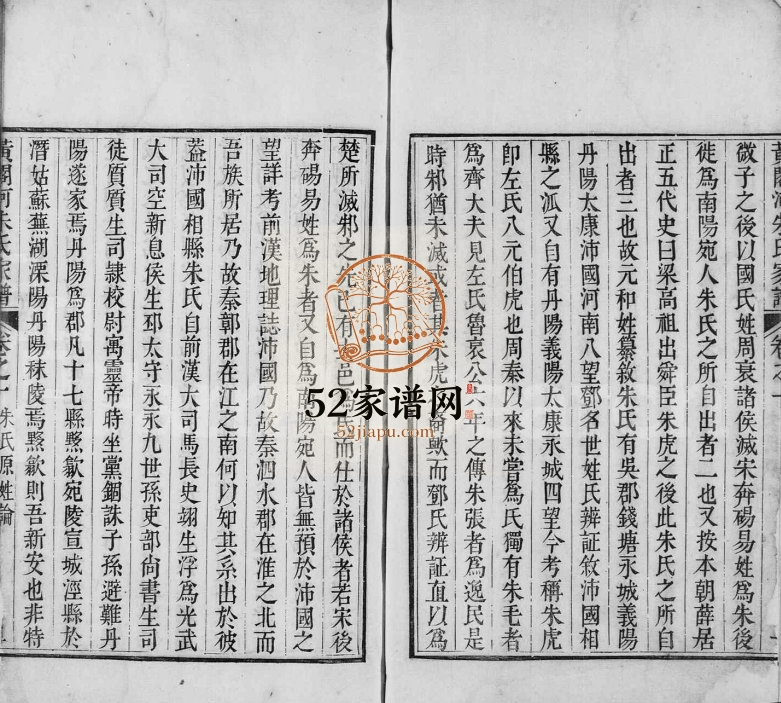 微子之後以國氏姓周衰諸侯滅宋奔碭易姓爲朱後
徙爲南陽宛人朱氏之所自出者二也又按本朝薛居
正五代史曰梁高祖出舜臣朱虎之後此朱氏之所自
出者三也故元和姓纂敘朱氏有吳郡錢塘永城義陽
丹陽太康沛國河南八望鄧名世姓氏辨証敘沛國相
縣之派又自有丹陽義陽太康永城四望今考稱朱虎
卽左氏八元伯虎也周秦以來未嘗爲氏獨有朱毛者
爲齊大夫見左氏魯哀公六年之傳朱張者爲逸民是
時邾猶未滅或者其朱虎裔歟而鄧氏辨証直以爲
楚所滅邾之先已有朱邑氏而仕於諸侯者若宋後
奔碭易姓爲朱者又自爲南陽宛人皆無預於沛國之
望詳考前漢地理誌沛國乃故秦泗水郡在淮之北而
吾族所居乃故秦鄣郡在江之南何以知其系出於彼
葢沛國相縣朱氏自前漢大司馬長史翊生浮爲光武
大司空新息侯生邳太守永永九世孫吏部尙書生司
徒質質生司隷校尉寓靈帝時坐黨錮誅子孫避難丹
陽遂家焉丹陽爲郡凡十七縣黟歙宛陵宣城涇縣於
潛姑蘇蕪湖溧陽丹陽秣陵焉黟歙則吾新安也非特
黃閣河朱氏家譜 卷之一 朱氏原姓論
52家谱网
52jiapu.com